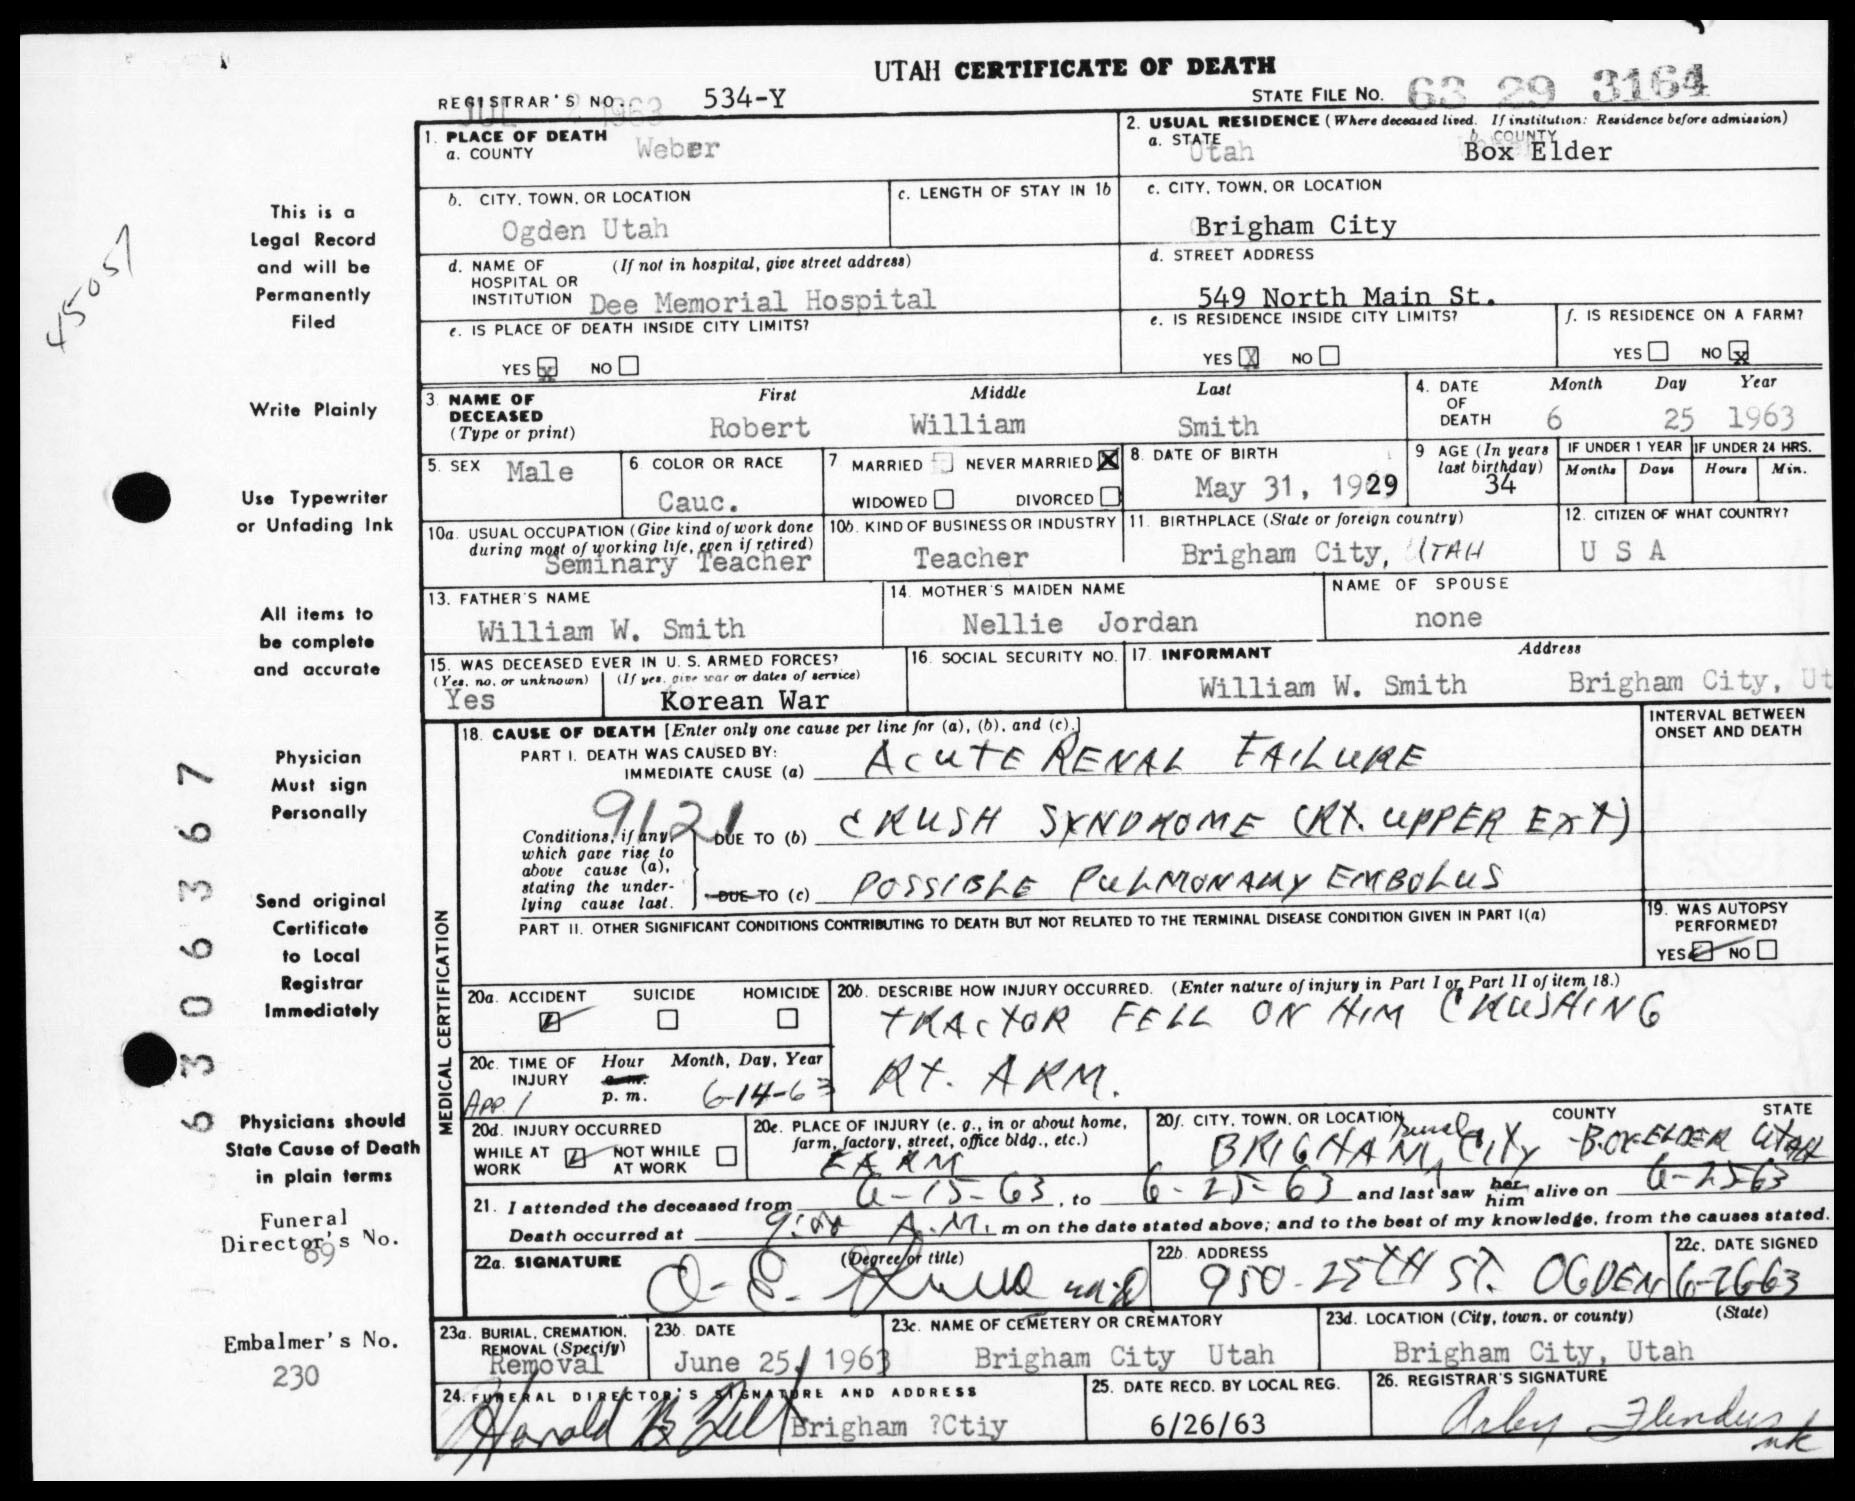 UTAH CERTIFICATE OF DEATH
REGISTRAR'S NO. 534-Y
JUL 2 1963
STATE FILE NO. 63 29 3164
1. PLACE OF DEATH
a. COUNTY Weber
2. USUAL RESIDENCE (Where deceased lived. If institution: Residence before admission)
a. STATE Utah
b. COUNTY Box Elder
b. CITY, TOWN, OR LOCATION
Ogden Utah
c. LENGTH OF STAY IN 1b
c. CITY, TOWN, OR LOCATION
Brigham City
d. NAME OF HOSPITAL OR INSTITUTION (If not in hospital, give street address)
Dee Memorial Hospital
d. STREET ADDRESS
549 North Main St.
e. IS PLACE OF DEATH INSIDE CITY LIMITS?
YES x NO
e. IS RESIDENCE INSIDE CITY LIMITS?
YES X NO
f. IS RESIDENCE ON A FARM?
YES NO x
3. NAME OF DECEASED (Type or print)
First Middle Last
Robert William Smith
4. DATE OF DEATH
Month Day Year
6 25 1963
5. SEX Male
6. COLOR OR RACE
Cauc.
7. MARRIED NEVER MARRIED X
WIDOWED DIVORCED
8. DATE OF BIRTH
May 31, 1929
9 AGE (In years last birthday)
34
IF UNDER 1 YEAR IF UNDER 24 HRS.
Months Days Hours Min.
10a. USUAL OCCUPATION (Give kind of work done during most of working life, even if retired)
Seminary Teacher
10b. KIND OF BUSINESS OR INDUSTRY
Teacher
11. BIRTHPLACE (State or foreign country)
Brigham City, UTAH
12. CITIZEN OF WHAT COUNTRY?
U S A
13. FATHER'S NAME
William W. Smith
14. MOTHER'S MAIDEN NAME
Nellie Jordan
NAME OF SPOUSE
none
15. WAS DECEASED EVER IN U. S. ARMED FORCES?
(Yes, no, or unknown) (If yes, give war or dates of service)
Yes Korean War
16. SOCIAL SECURITY NO.
17. INFORMANT Address
William W. Smith Brigham City, Ut
18. CAUSE OF DEATH [Enter only one cause per line for (a), (b), and (c).]
INTERVAL BETWEEN ONSET AND DEATH
PART I. DEATH WAS CAUSED BY:
IMMEDIATE CAUSE (a) ACUTE RENAL FAILURE
9121
Conditions, if any, which gave rise to above cause (a), stating the underlying cause last.
DUE TO (b) CRUSH SYNDROME (RT. UPPER EXT)
DUE TO (c) POSSIBLE PULMONARY EMBOLUS
PART II. OTHER SIGNIFICANT CONDITIONS CONTRIBUTING TO DEATH BUT NOT RELATED TO THE TERMINAL DISEASE CONDITION GIVEN IN PART I(a)
19. WAS AUTOPSY PERFORMED?
YES NO
MEDICAL CERTIFICATION
20a. ACCIDENT SUICIDE HOMICIDE
20b. DESCRIBE HOW INJURY OCCURRED. (Enter nature of injury in Part I or Part II of item 18.)
TRACTOR FELL ON HIM CRUSHING
RT. ARM.
20c. TIME OF INJURY Hour Month, Day, Year
a.m.
p. m.
APP. 1 6-14-63
20d. INJURY OCCURRED
WHILE AT WORK NOT WHILE AT WORK
20e. PLACE OF INJURY (e. g., in or about home, farm, factory, street, office bldg., etc.)
FARM
20f. CITY, TOWN, OR LOCATION COUNTY STATE
rural
BRIGHAM CITY - BOX ELDER UTAH
21. I attended the deceased from 6-15-63, to 6-25-63 and last saw her him alive on 6-25-63
Death occurred at 9:00 A.M. m on the date stated above; and to the best of my knowledge, from the causes stated.
22a. SIGNATURE (Degree or title)
22b. ADDRESS
950-25TH ST. OGDEN
22c. DATE SIGNED
6-26-63
23a. BURIAL, CREMATION, REMOVAL (Specify)
Removal
23b. DATE
June 25, 1963
23c. NAME OF CEMETERY OR CREMATORY
Brigham City Utah
23d. LOCATION (City, town, or county) (State)
Brigham City, Utah
24. FUNERAL DIRECTOR'S SIGNATURE AND ADDRESS
Harold B. Brigham ?Ctiy
25. DATE RECD. BY LOCAL REG.
6/26/63
26. REGISTRAR'S SIGNATURE
This is a
Legal Record
and will be
Permanently
Filed
Write Plainly
Use Typewriter
or Unfading Ink
All items to
be complete
and accurate
Physician
Must sign
Personally
Send original
Certificate
to Local
Registrar
Immediately
Physicians should
State Cause of Death
in plain terms
Funeral
Director's No.
89
Embalmer's No.
230
45051
6306367